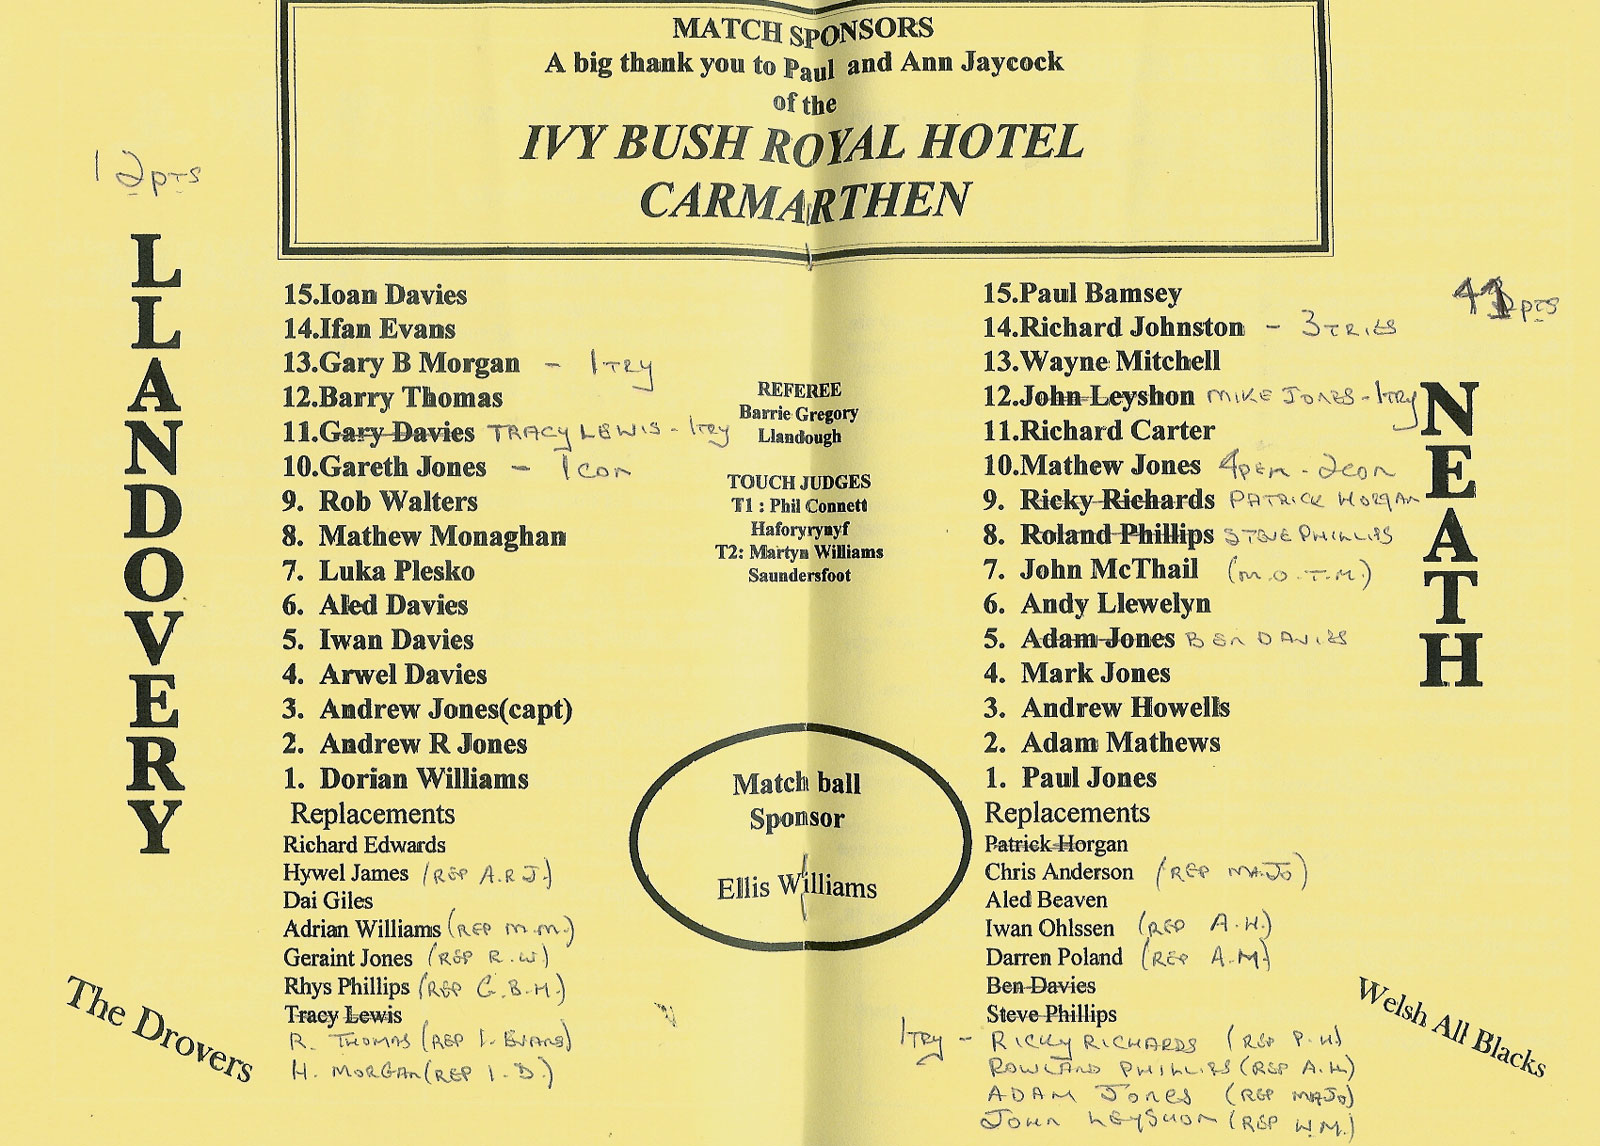 MATCH SPONSORS
A big thank you to Paul and Ann Jaycock
of the
IVY BUSH ROYAL HOTEL
CARMARTHEN
12pts
LLANDOVERY
15.Ioan Davies
14.Ifan Evans
13.Gary B Morgan - 1 TRY
12.Barry Thomas
11.Gary Davies TRACY LEWIS - 1TRY
10.Gareth Jones - 1 CON
9. Rob Walters
8. Mathew Monaghan
7. Luka Plesko
6. Aled Davies
5. Iwan Davies
4. Arwel Davies
3. Andrew Jones(capt)
2. Andrew R Jones
1. Dorian Williams
Replacements
Richard Edwards
Hywel James (REP A.R.J.)
Dai Giles
Adrian Williams (REP M.M.)
Geraint Jones (REP R.W.)
Rhys Phillips (REP G.B.M.)
Tracy Lewis
R. THOMAS (REP I. EVANS)
H. MORGAN (REP I.D.)
The Drovers
REFEREE
Barrie Gregory
Llandough
TOUCH JUDGES
T1 : Phil Connett
Haforyrynyf
T2: Martyn Williams
Saundersfoot
Match ball
Sponsor
Ellis Williams
pts
NEATH
15.Paul Bamsey
14.Richard Johnston - 3 TRIES
13.Wayne Mitchell
12.John Leyshon MIKE JONES - 1TRY
11.Richard Carter
10.Mathew Jones 4 PEN - 2 CON
9. Ricky Richards PATRICK HORGAN
8. Roland Phillips STEVE PHILLIPS
7. John McThail (M.O.T.M.)
6. Andy Llewelyn
5. Adam Jones BEN DAVIES
4. Mark Jones
3. Andrew Howells
2. Adam Mathews
1. Paul Jones
Replacements
Patrick Horgan
Chris Anderson (REP MA.JO)
Aled Beaven
Iwan Ohlssen (REP A.H.)
Darren Poland (REP A.M)
Ben Davies
Steve Phillips
1TRY - RICKY RICHARDS (REP P.H)
ROWLAND PHILLIPS (REP A.H)
ADAM JONES (REP MAJO)
JOHN LEYSHON (REP W.M.)
Welsh All Blacks